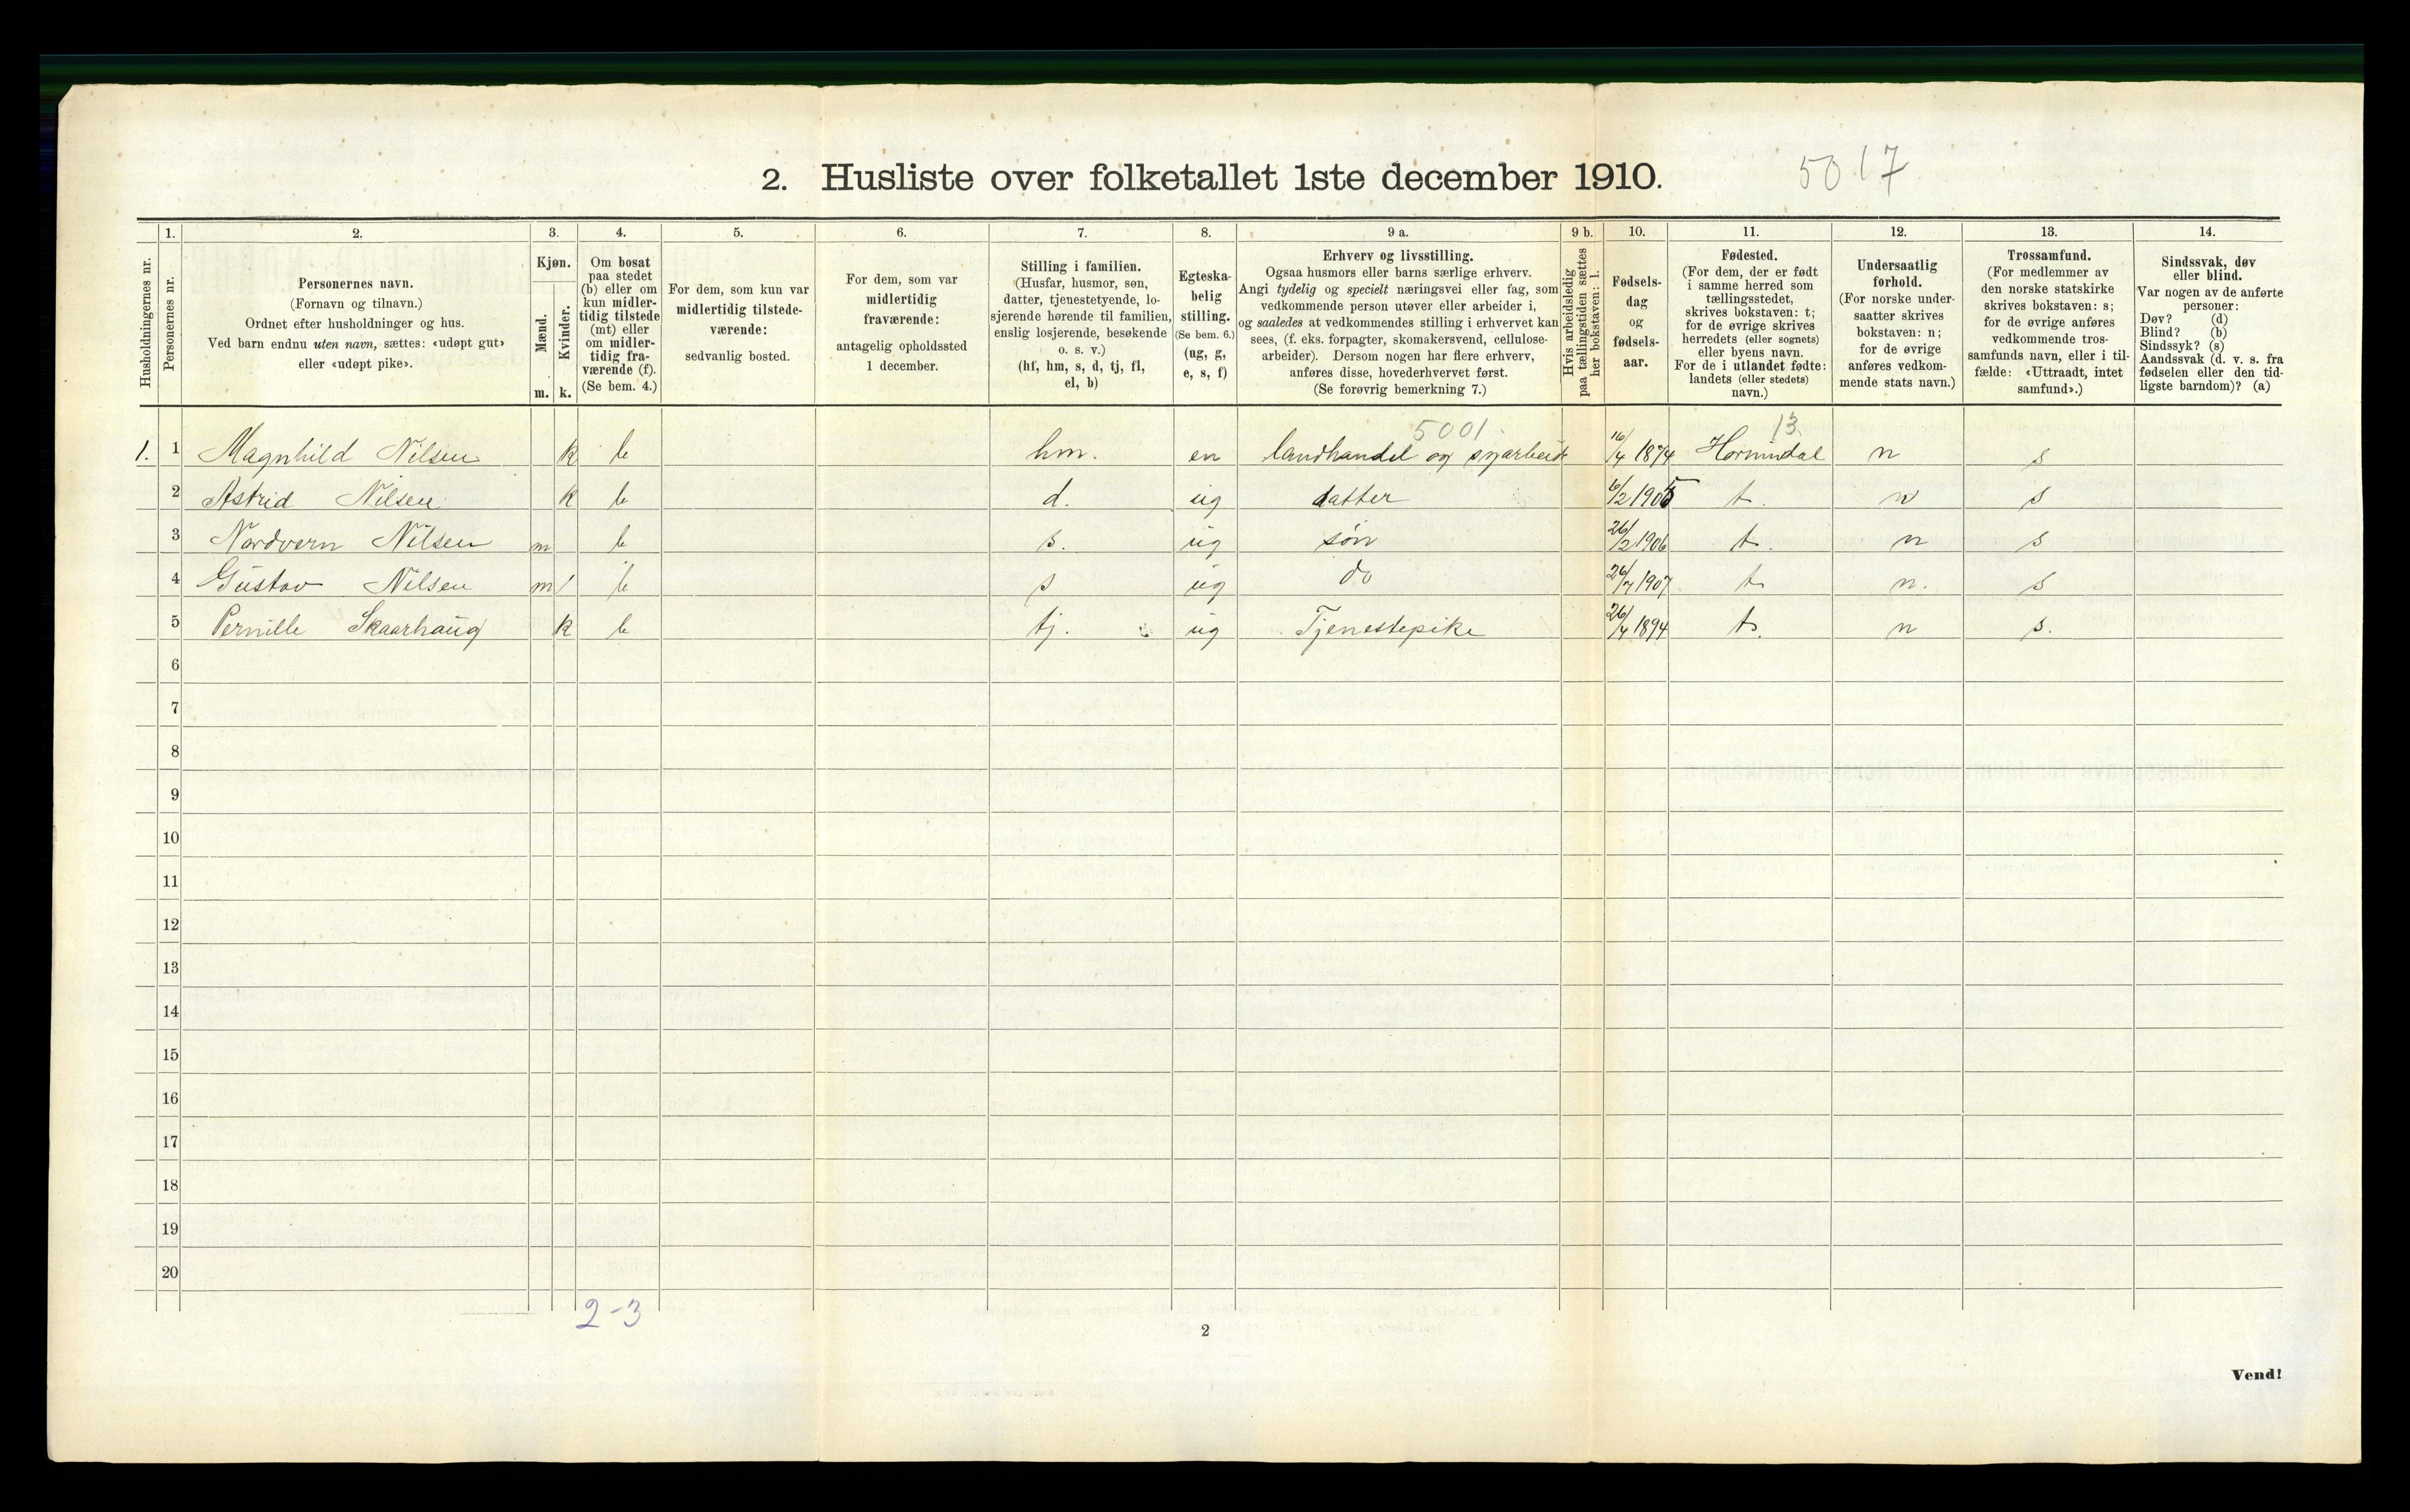 2. Husliste over folketallet 1ste december 1910.
5017
Husholdningernes nr.
1.
Personernes nr.
2.
Personernes navn.
(Fornavn og tilnavn.)
Ordnet efter husholdninger og hus.
Ved barn endnu uten navn, sættes: «udøpt gut»
eller «udøpt pike».
3.
Kjøn.
Mænd.
Kvinder.
m. k.
4.
Om bosat
paa stedet
(b) eller om
kun midler-
tidig tilstede
(mt) eller
om midler-
tidig fra-
værende (f).
(Se bem. 4.)
5.
For dem, som kun var
midlertidig tilstede-
værende:
sedvanlig bosted.
6.
For dem, som var
midlertidig
fraværende:
antagelig opholdssted
1 december.
7.
Stilling i familien.
(Husfar, husmor, søn,
datter, tjenestetyende, lo-
sjerende hørende til familien,
enslig losjerende, besøkende
o. s. v.)
(hf, hm, s, d, tj, fl,
el, b)
8.
Egteska-
belig
stilling.
(Se bem. 6.)
(ug, g,
e, s, f)
9 a.
Erhverv og livsstilling.
Ogsaa husmors eller barns særlige erhverv.
Angi tydelig og specielt næringsvei eller fag, som
vedkommende person utøver eller arbeider i,
og saaledes at vedkommendes stilling i erhvervet kan
sees, (f. eks. forpagter, skomakersvend, cellulose-
arbeider). Dersom nogen har flere erhverv,
anføres disse, hovederhvervet først.
(Se forøvrig bemerkning 7.)
9 b.
Hvis arbeidsledig
paa tællingstiden sættes
her bokstaven: l.
10.
Fødsels-
dag
og
fødsels-
aar.
11.
Fødested.
(For dem, der er født
i samme herred som
tællingsstedet,
skrives bokstaven: t;
for de øvrige skrives
herredets (eller sognets)
eller byens navn.
For de i utlandet fødte:
landets (eller stedets)
navn.)
12.
Undersaatlig
forhold.
(For norske under-
saatter skrives
bokstaven: n;
for de øvrige
anføres vedkom-
mende stats navn.)
13.
Trossamfund.
(For medlemmer av
den norske statskirke
skrives bokstaven: s;
for de øvrige anføres
vedkommende tros-
samfunds navn, eller i til-
fælde: «Uttraadt, intet
samfund».)
14.
Sindssvak, døv
eller blind.
Var nogen av de anførte
personer:
Døv? (d)
Blind? (b)
Sindssyk? (s)
Aandssvak (d. v. s. fra
fødselen eller den tid-
ligste barndom)? (a)
5001 13
1. 1 Magnhild Nilsen k b hm. en landhandel og syarbeid 16/4 1874 Hornindal n s
2 Astrid Nilsen k b d. ug datter 6/2 1905 t. n s
3 Nordvern Nilsen m b s. ug søn 26/2 1906 t. n s
4 Gustav Nilsen m b s ug do 26/7 1907 t n. s
5 Pernille Skaarhaug k b tj. ug Tjenestepike 26/4 1894 t. n s.
6
7
8
9
10
11
12
13
14
15
16
17
18
19
20
2-3
2
Vend!